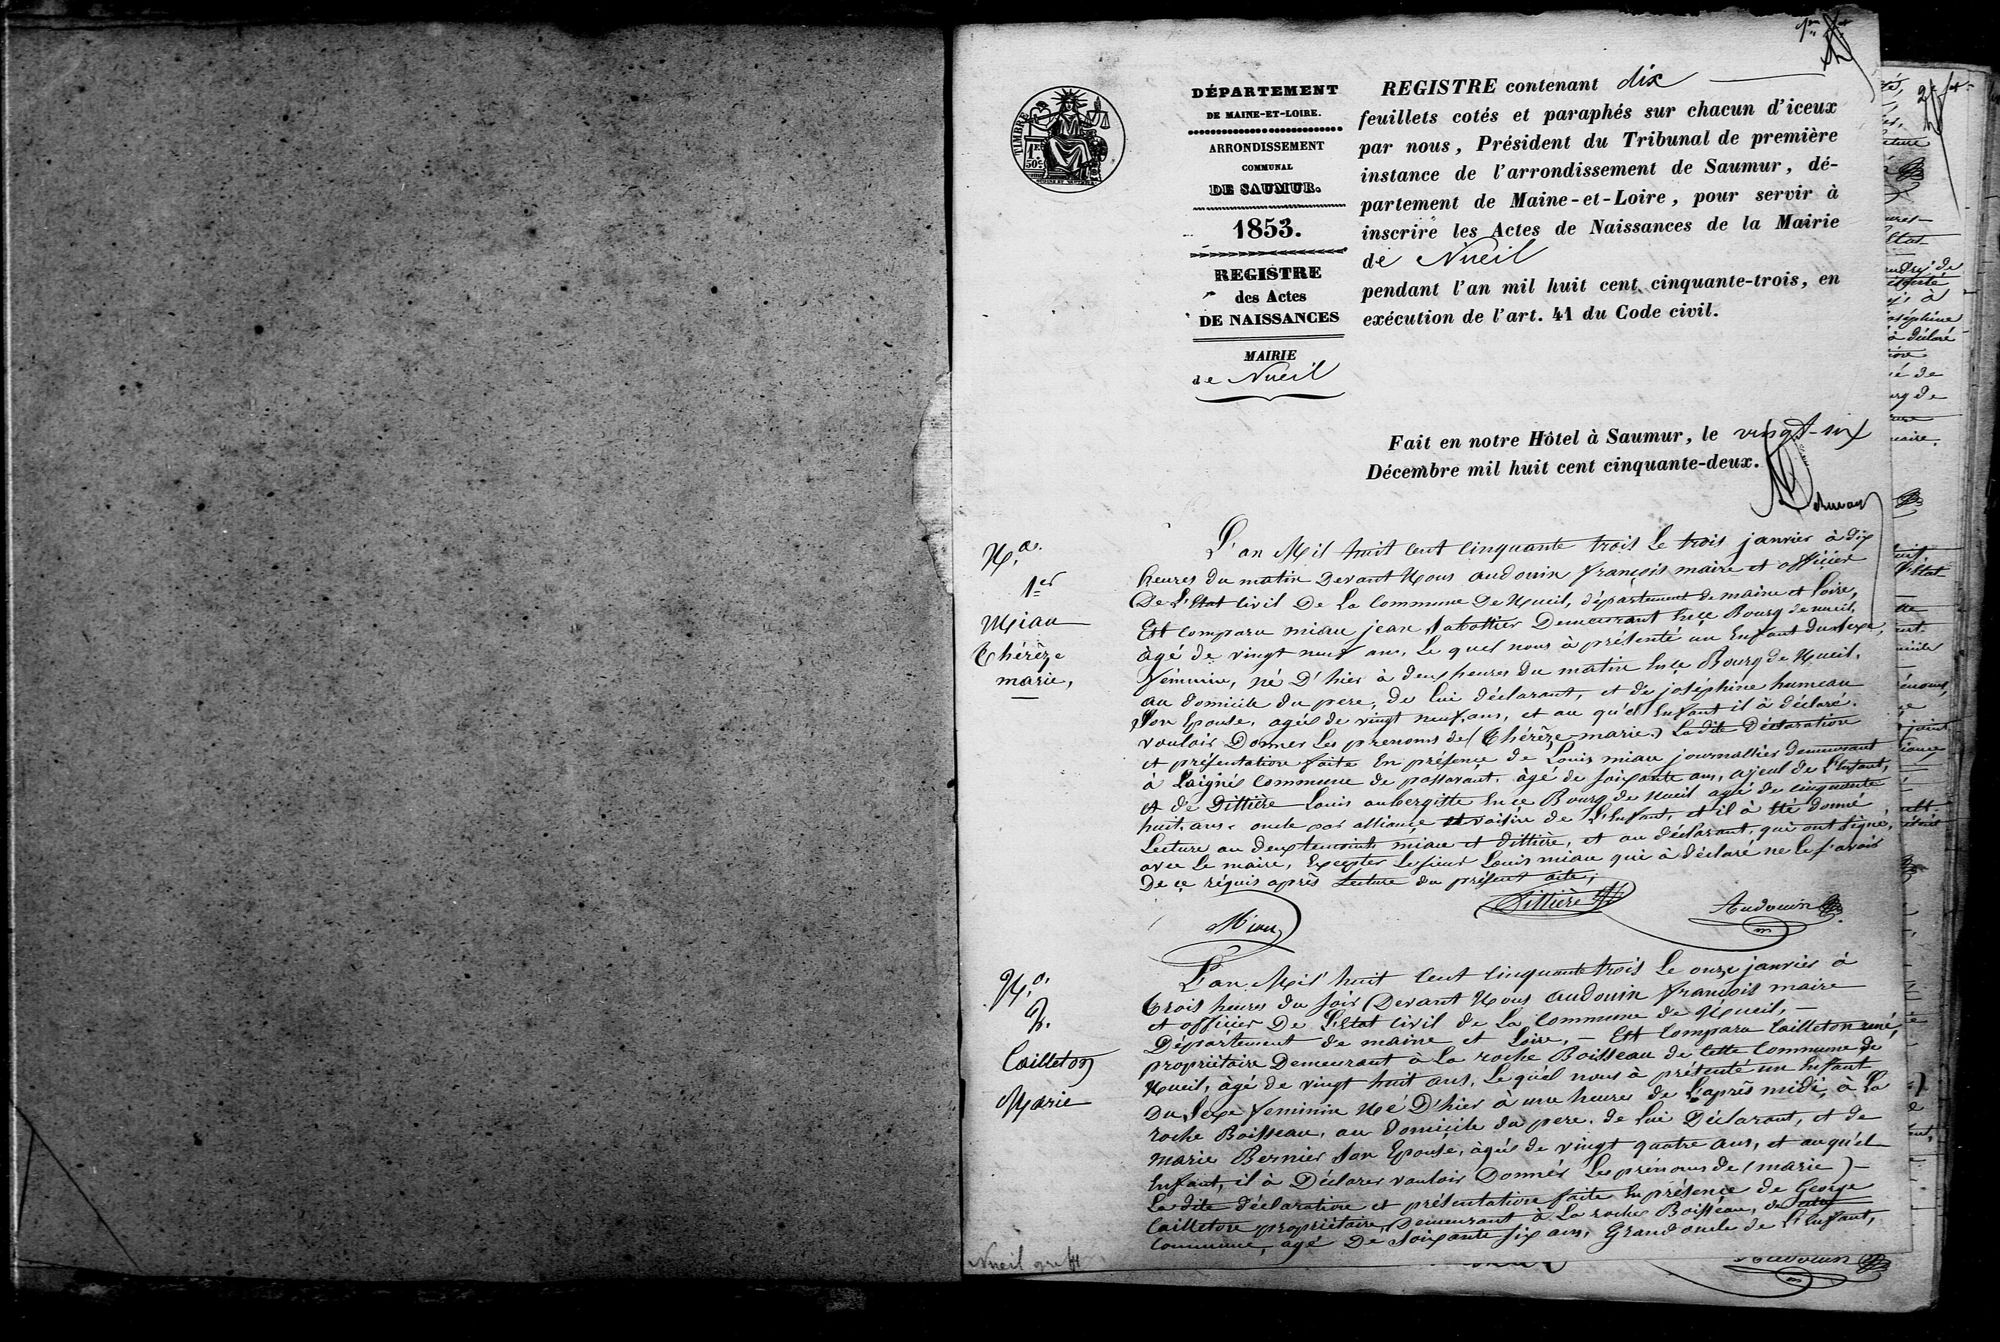 1er f.et
TIMBRE
1F
50c
DÉPARTEMENT
DE MAINE-ET-LOIRE.
ARRONDISSEMENT
COMMUNAL
DE SAUMUR.
1853.
REGISTRE
des Actes
DE NAISSANCES
MAIRIE
de Nueil
REGISTRE contenant dix
feuillets cotés et paraphés sur chacun d'iceux
par nous, Président du Tribunal de première
instance de l'arrondissement de Saumur, dé-
partement de Maine-et-Loire, pour servir à
inscrire les Actes de Naissances de la Mairie
de Nueil
pendant l'an mil huit cent cinquante-trois, en
exécution de l'art. 41 du Code civil.
Fait en notre Hôtel à Saumur, le vingt-six
Décembre mil huit cent cinquante-deux.
N.o
1er
Miau
Thérèze
marie,
L'an Mil huit cent cinquante trois Le trois janvier à dix
heures du matin Devant Nous audouin françois maire et officier
De L'Etat Civil De La Commune De Nueil, département de maine et Loire,
Est comparu miau jean, Sabottier Demeurant En ce Bourg de nueil,
âgé de vingt neuf ans, Le quel nous à présenté un Enfant du Sexe,
féminin, né D'hier à deux heures du matin En ce Bourg de Nueil,
au domicile du pere, de Lui déclarant, et de joséphine humeau
Son Epouse, agée de vingt neuf ans, et au qu'el Enfant il à déclaré
vouloir Donner Les prenoms de (Thérèze-marie) La dite Déclaration
et présentation faite En présence de Louis miau journallier demeurant
à Laigné Commune de passavant, âgé de soixante ans, ajeul de L'Enfant,
et de Dittière Louis aubergiste En ce Bourg de Nueil agé de cinquante
huit ans, oncle par alliance et voisin de L'Enfant, et il à été donné
Lecture au deux temoints miau et dittière, et au déclarant, qui ont signé,
avec Le maire, Excepter Le sieur Louis miau qui à déclaré ne le savoir
De ce réquis après Lecture du présent acte,
Miau
Dittière
Audouin
N.o
2.
Cailleton
Marie
L'an Mil huit Cent Cinquante trois Le onze janvier à
trois heures du soir Devant Nous audouin françois maire
et officier De L'Etat Civil de La Commune de Nueil, -
Département de maine et Loire, - Est Comparu Cailleton réné,
propriétaire Demeurant à La roche Boisseau de Cette Commune de
Nueil, âgé de vingt huit ans, Le qu'el nous à présenté un Enfant
Du Sexe féminin Né D'hier à une heure de L'après midi, à La
roche Boisseau, au domicile du pere, de Lui Déclarant, et de
marie Bernier Son Epouse, agée de vingt quatre ans, et auqu'el
Enfant, il à Déclarer vouloir Donner Les prenoms de (marie) -
La dite déclaration et présentation faite En présence de George
Cailleton propriétaire, Demeurant à La roche Boisseau, de cette
Commune, agé De Soixante Six ans, Grand oncle de L'Enfant,
2e f.et
Audouin